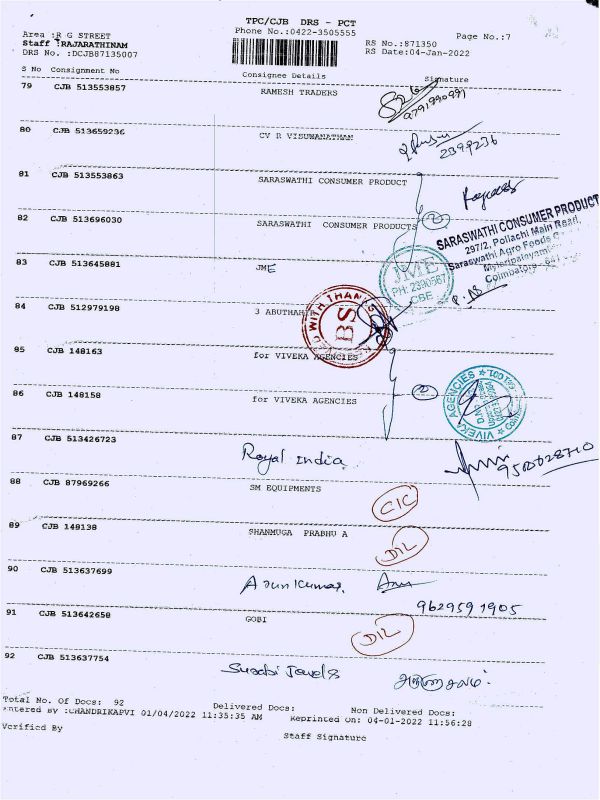 TPC/CJB DRS - PCT
Area :R G STREET
Phone No.:0422-3505555
Page No.:7
Staff :RAJARATHINAM
RS No.:871350
DRS No. :DCJB87135007
RS Date:04-Jan-2022
S No Consignment No Consignee Details Signature
79 CJB 513553857 RAMESH TRADERS
9791990991
80 CJB 513659236 CV R VISUWANATHAN
2399236
81 CJB 513553863 SARASWATHI CONSUMER PRODUCT
82 CJB 513696030 SARASWATHI CONSUMER PRODUCTS 2
SARASWATHI CONSUMER PRODUCT
297/2, Pollachi Main Road,
Saraswathi Agro Foods
Myleripalayam
Coimbatore
83 CJB 513645881 JME
JME
PH: 2390567
CBE
84 CJB 512979198 3 ABUTHAHIR
WITH THANKS
BS
85 CJB 148163 for VIVEKA AGENCIES
86 CJB 148158 for VIVEKA AGENCIES 2
VIVEKA AGENCIES
87 CJB 513426723 Royal India
9500028710
88 CJB 87969266 SM EQUIPMENTS CIC
89 CJB 148138 SHANMUGA PRABHU A DIL
90 CJB 513637699 Arunkumar
9629591905
91 CJB 513642658 GOBI DIL
92 CJB 513637754 அருணாசலம்
Total No. Of Docs: 92 Delivered Docs: Non Delivered Docs:
Entered By :CHANDRIKAPVI 01/04/2022 11:35:35 AM Reprinted On: 04-01-2022 11:56:28
Verified By Staff Signature